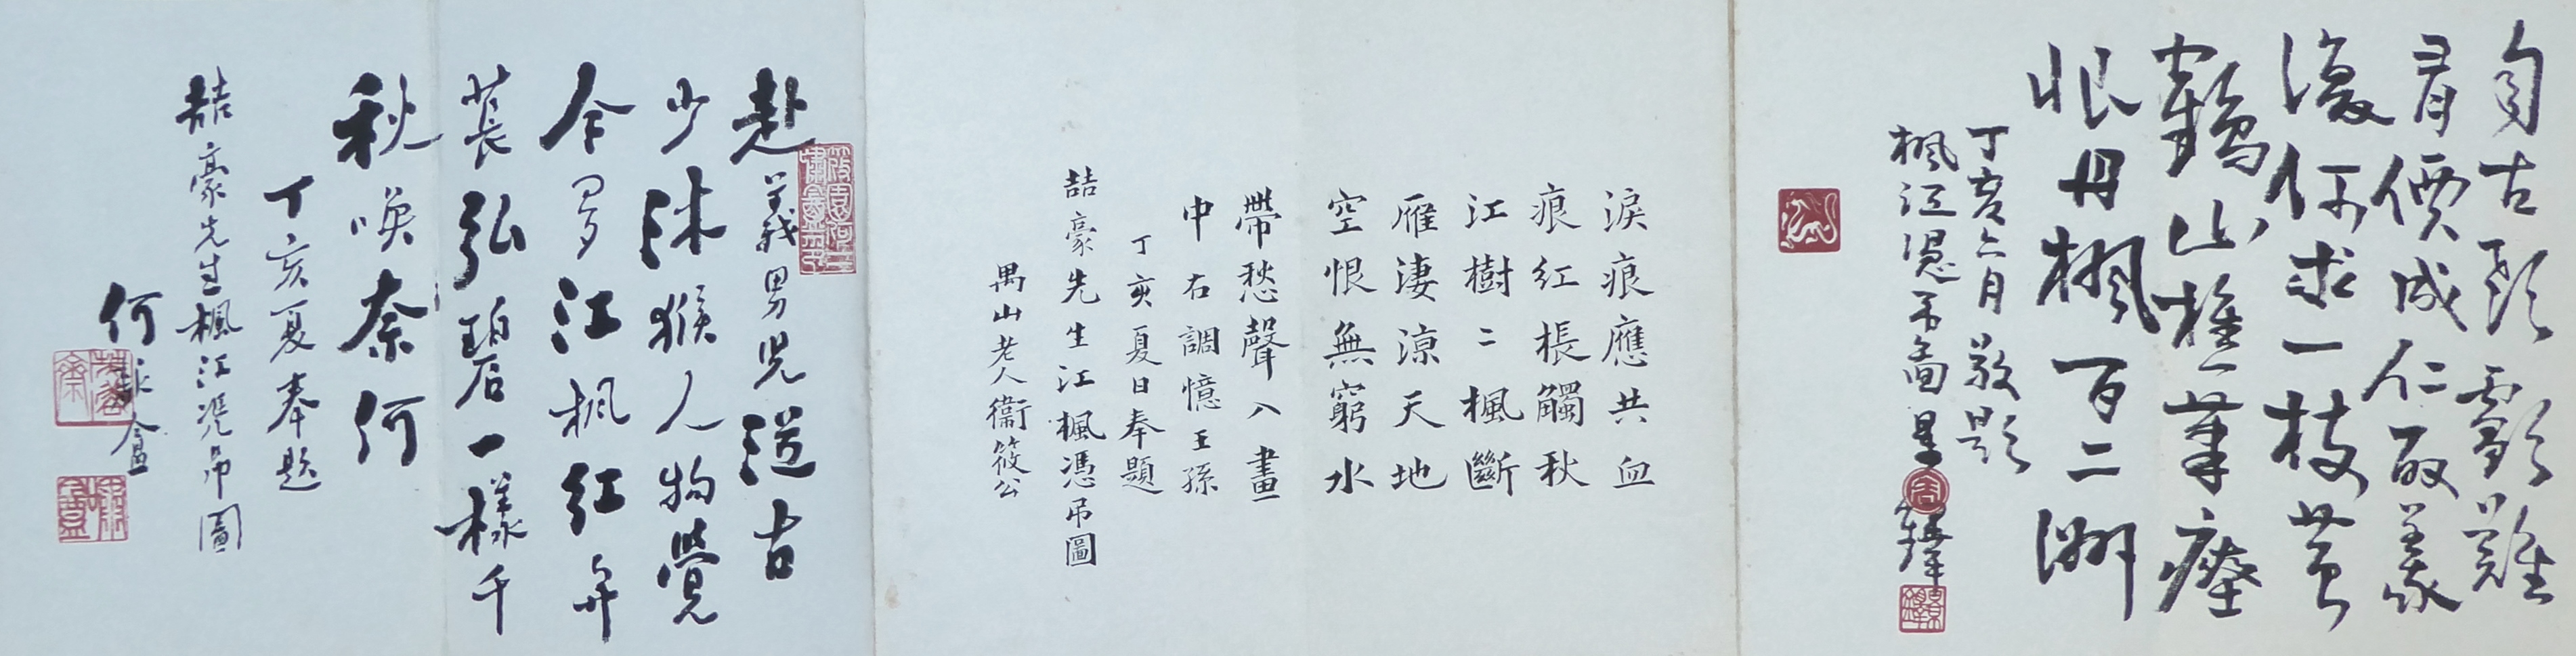 自古頭顱難
有價成仁取義
復何求一枝黃
鶴山樵筆塵
恨丹楓百二洲
丁亥六月敬題
楓江憑吊圖
淚痕應共血
痕紅棖觸秋
江樹二楓斷
雁淒涼天地
空恨無窮水
帶愁聲入畫
中 右調憶王孫
丁亥夏日奉題
喆豪先生江楓憑吊圖
禺山老人衛筱公
赴義男兒邁古
少沐猴人物覺
今多江楓紅弁
萇弘碧一樣千
秋喚奈何
丁亥夏奉題
喆豪先生楓江憑吊圖
何 盦